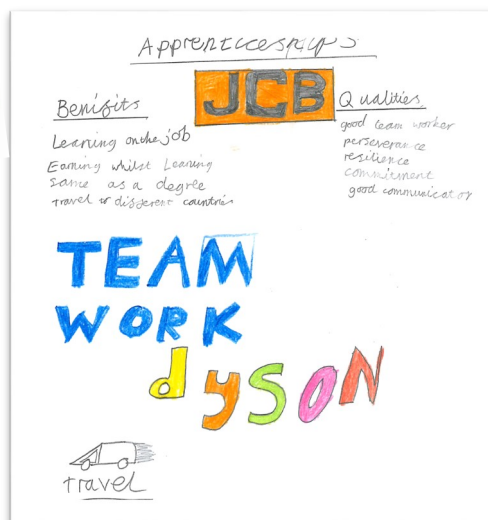 Apprenticeships
JCB
Benifits
Learning on the job
Earning whilst Learning
same as a degree
travel to different countries
Qualities
good team worker
perseverance
resilience
commitment
good communicator
TEAM
WORK
dysoN
travel